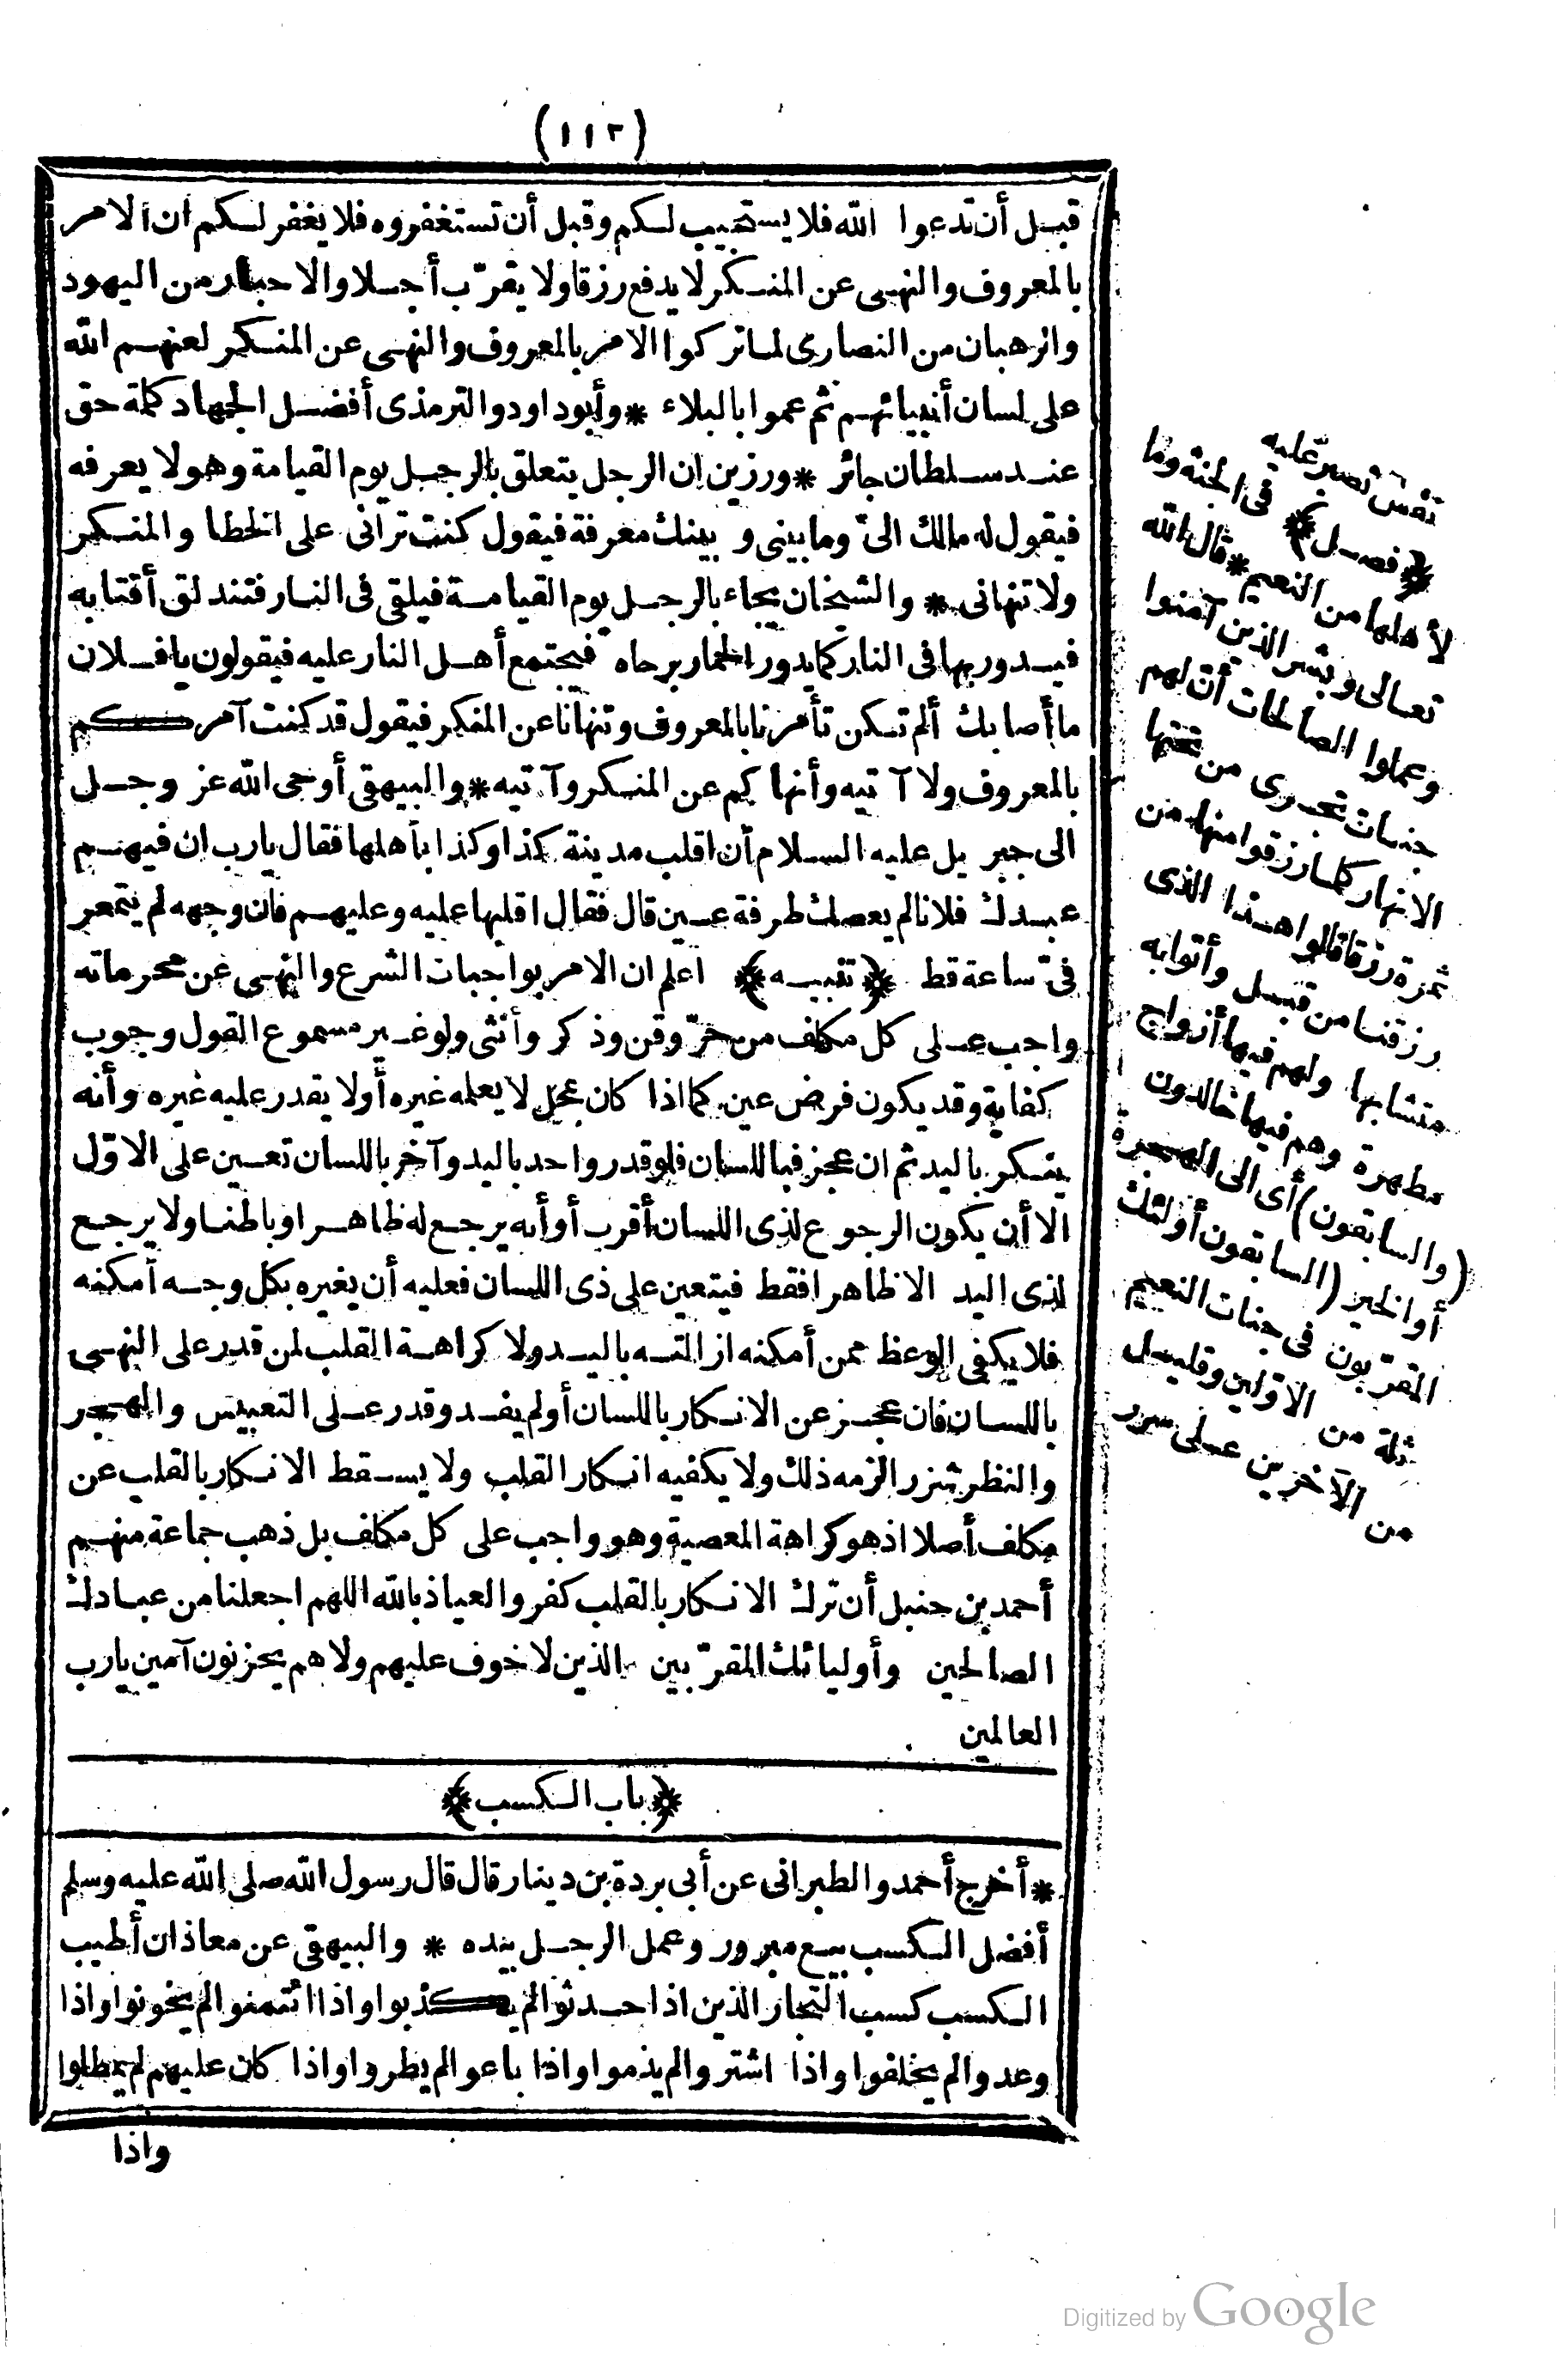 (١١٢)
قبل أن تدعوا الله فلا يستجيب لكم وقبل أن تستغفروه فلا يغفر لكم ان الامر
بالمعروف والنهى عن المنكر لا يدفع رزقا ولا يقرّب أجلا والاحبار من اليهود
والرهبان من النصارى لما تركوا الامر بالمعروف والنهى عن المنكر لعنهم الله
على لسان أنبيائهم ثم عموا بالبلاء * وأبوداود والترمذى أفضل الجهاد كلمة حق
عند سلطان جائر * ورزين ان الرجل يتعلق بالرجل يوم القيامة وهو لا يعرفه
فيقول له مالك الىّ وما بينى و بينك معرفة فيقول كنت ترانى على الخطا والمنكر
ولا تنهانى * والشيخان يجاء بالرجل يوم القيامة فيلقى فى النار فتندلق أقتابه
فيدور بها فى النار كما يدور الحمار برحاه فيجتمع أهل النار عليه فيقولون يا فلان
ما أصابك ألم تكن تأمرنا بالمعروف وتنهانا عن المنكر فيقول قد كنت آمركم
بالمعروف ولا آتيه وأنهاكم عن المنكر وآتيه * والبيهقى أوحى الله عز وجل
الى جبريل عليه السلام أن اقلب مدينة كذا وكذا بأهلها فقال يارب ان فيهم
عبدك فلانا لم يعصك طرفة عين قال فقال اقلبها عليه وعليهم فان وجهه لم يتمعر
فىّ ساعة قط ﴿تنبيه﴾ اعلم ان الامر بواجبات الشرع والنهى عن محرماته
واجب على كل مكلف من حرّ وقن وذكر وأنثى ولو غير مسموع القول وجوب
كفاية وقد يكون فرض عين كما اذا كان بمحل لا يعلمه غيره أو لا يقدر عليه غيره وأنه
ينكر باليد ثم ان عجز فباللسان فلو قدر واحد باليد وآخر باللسان تعين على الاوّل
الا أن يكون الرجوع لذى اللسان أقرب أو أنه يرجع له ظاهرا وباطنا ولا يرجع
لذى اليد الا ظاهرا فقط فيتعين على ذى اللسان فعليه أن يغيره بكل وجه أمكنه
فلا يكفى الوعظ ممن أمكنه ازالته باليد ولا كراهة القلب لمن قدر على النهى
باللسان فان عجز عن الانكار باللسان أو لم يفد وقدر على التعبيس والهجر
والنظر شزر الزمه ذلك ولا يكفيه انكار القلب ولا يسقط الانكار بالقلب عن
مكلف أصلا اذ هو كراهة المعصية وهو واجب على كل مكلف بل ذهب جماعة منهم
أحمد بن حنبل أن ترك الانكار بالقلب كفر والعياذ بالله اللهم اجعلنا من عبادك
الصالحين وأوليائك المقرّبين الذين لا خوف عليهم ولا هم يحزنون آمين يارب
العالمين
﴿باب الكسب﴾
* أخرج أحمد والطبرانى عن أبى بردة بن دينار قال قال رسول الله صلى الله عليه وسلم
أفضل الكسب بيع مبرور وعمل الرجل بيده * والبيهقى عن معاذ ان أطيب
الكسب كسب التجار الذين اذا حدثوا لم يكذبوا واذا ائتمنوا لم يخونوا واذا
وعدوا لم يخلفوا واذا اشتروا لم يذموا واذا باعوا لم يطروا واذا كان عليهم لم يمطلوا
واذا
نفس تصبر عليه
﴿فصل﴾ فى الجنة وما
لأهلها من النعيم * قال الله
تعالى وبشر الذين آمنوا
وعملوا الصالحات أن لهم
جنات تجرى من تحتها
الانهار كلما رزقوا منها من
ثمرة رزقا قالوا هذا الذى
رزقنا من قبل وأتوا به
متشابها ولهم فيها أزواج
مطهرة وهم فيها خالدون
(والسابقون) أى الى الهجرة
أو الخير (السابقون أولئك
المقرّبون فى جنات النعيم
ثلة من الاوّلين وقليل
من الآخرين على سرر
Digitized by Google